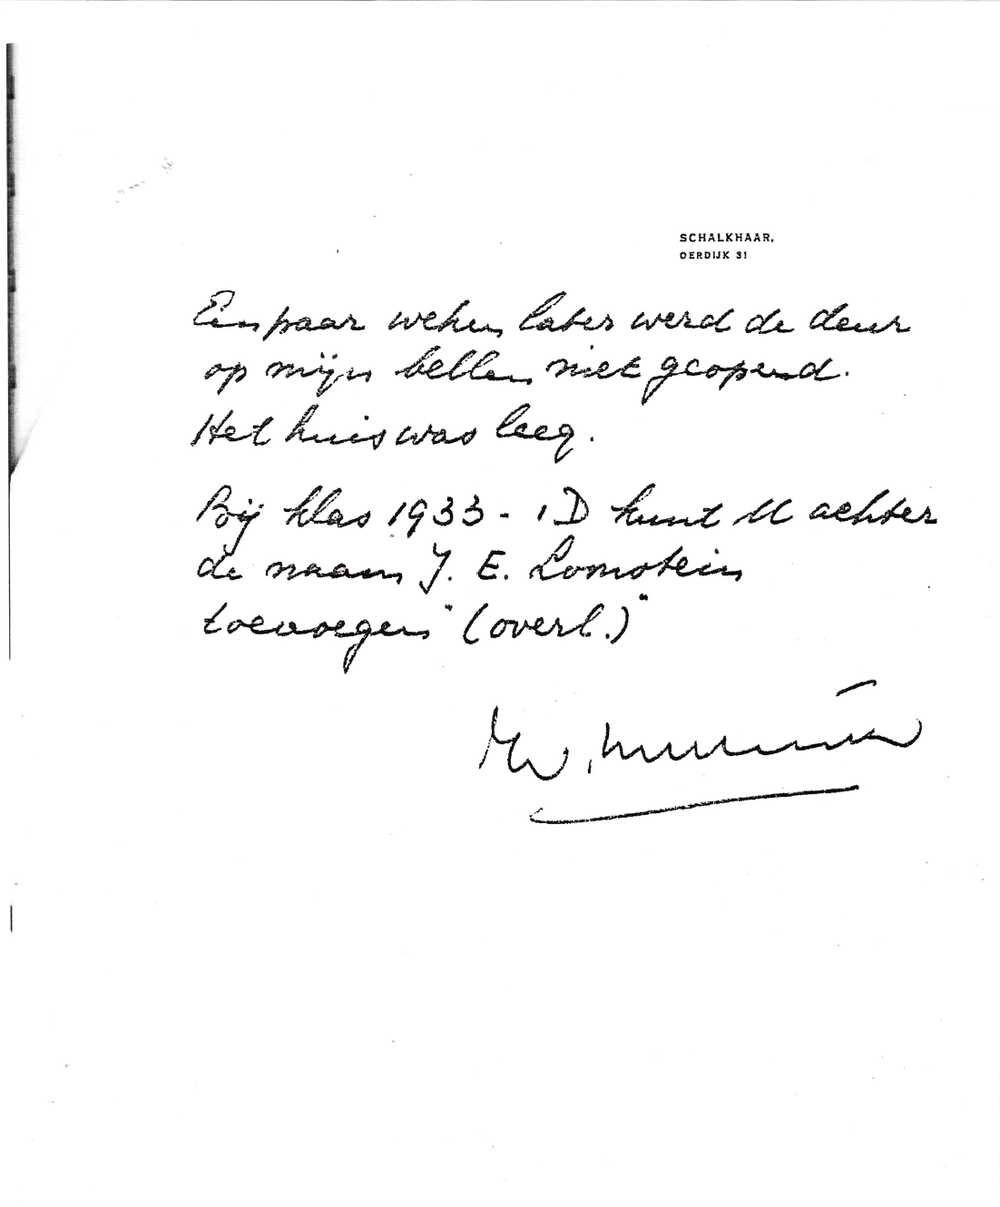 SCHALKHAAR,
OERDIJK 31
Een paar weken later werd de deur
op mijn bellen niet geopend.
Het huis was leeg.
Bij klas 1933 - 1D kunt U achter
de naam J. E. Lomstein
toevoegen "(overl.)"